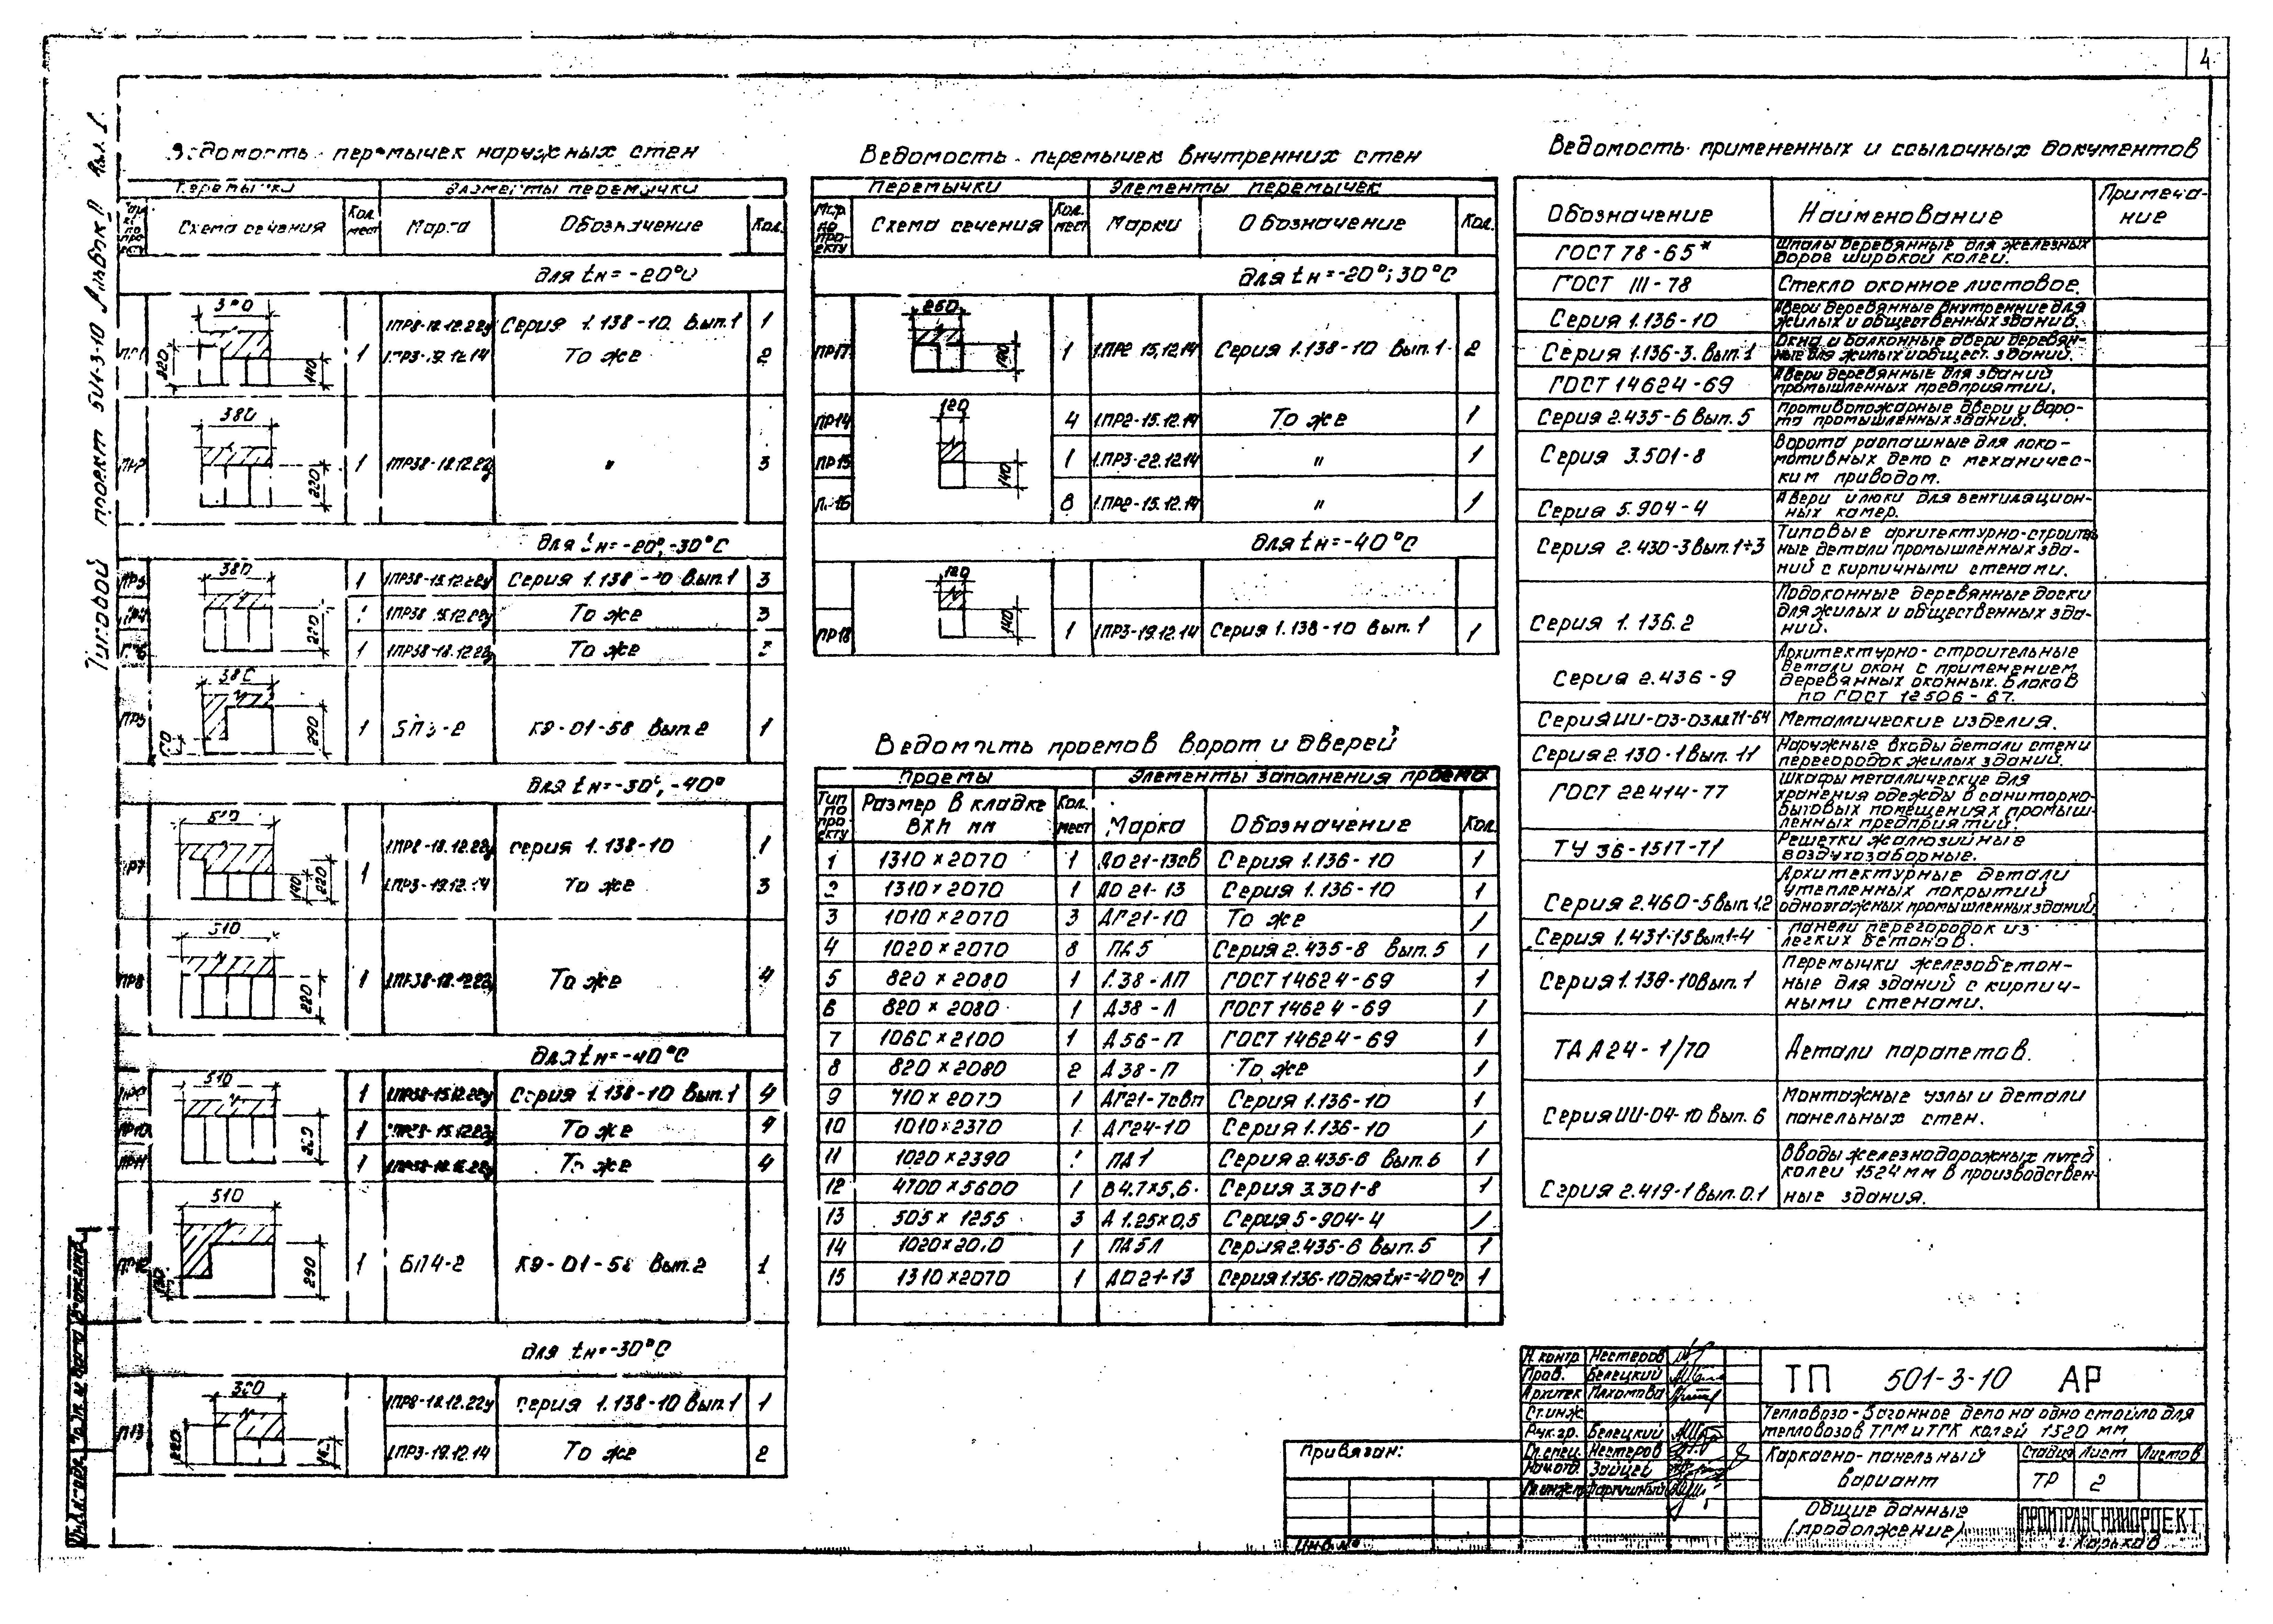 4
Типовой проект 501-3-10 Альбом II
Ведомость перемычек наружных стен
Перемычки Элементы перемычки
Схема сечения Кол. мест Марка Обозначение Кол.
для tн = -20°С
380 220 140
1 1ПР8-18.12.22у Серия 1.138-10 Вып.1 1
1ПР3-19.12.14 То же 2
380 220
1 1ПР38-18.12.22у " 3
для tн = -20°, -30°С
380 220
1 1ПР38-15.12.22у Серия 1.138-10 Вып.1 3
1ПР38-15.12.22у То же 3
1 1ПР38-18.12.22у То же
ПР5 1 БП3-2 КЭ-01-58 Вып.2 1
для tн = -30°, -40°
510 140 220
ПР7 1 1ПР8-18.12.22у серия 1.138-10 1
1ПР3-19.12.14 То же 3
510 220
ПР8 1 1ПР38-18.12.22у То же 4
для tн = -40°С
510
1 1ПР38-15.12.22у Серия 1.138-10 Вып.1 4
ПР10 1 То же 4
ПР11 1 То же 4
510 290
ПР12 1 БП4-2 КЭ-01-58 Вып.2 1
для tн = -30°С
380 220
1ПР8-18.12.22у Серия 1.138-10 Вып.1 1
1ПР3-19.12.14 То же 2
Ведомость перемычек внутренних стен
Перемычки Элементы перемычек
Мар. по проекту Схема сечения Кол. мест Марки Обозначение Кол.
для tн = -20°; 30°С
260 140
ПР17 1 1ПР2-15.12.14 Серия 1.138-10 Вып.1 2
120 140
ПР14 4 1ПР2-15.12.14 То же 1
ПР15 1 1ПР3-22.12.14 " 1
8 1ПР2-15.12.14 " 1
для tн = -40°С
120 140
ПР18 1 1ПР3-19.12.14 Серия 1.138-10 Вып.1 1
Ведомость проемов ворот и дверей
Проемы Элементы заполнения проема
Тип по проекту Размер в кладке ВХh мм Кол. мест Марка Обозначение Кол.
1 1310×2070 1 ДО21-13св Серия 1.136-10 1
2 1310×2070 1 ДО21-13 Серия 1.136-10 1
3 1010×2070 3 ДГ21-10 То же 1
4 1020×2070 8 ПД5 Серия 2.435-8 вып.5 1
5 820×2080 1 ГОСТ 14624-69 1
6 820×2080 1 Д38-Л ГОСТ 14624-69 1
7 1060×2100 1 Д56-П ГОСТ 14624-69 1
8 820×2080 2 Д38-П То же 1
9 710×2070 1 ДГ21-7свп Серия 1.136-10 1
10 1010×2370 1 ДГ24-10 Серия 1.136-10 1
11 1020×2390 ПД1 Серия 2.435-6 вып.6 1
12 4700×5600 1 В4.7×5,6 Серия 3.301-8 1
13 505×1255 3 Д1.25×0,5 Серия 5-904-4 1
14 1 ПД5Л Серия 2.435-6 вып.5 1
15 1310×2070 1 ДО21-13 Серия 1.136-10 для tн=-40°С 1
Ведомость примененных и ссылочных документов
Обозначение Наименование Примечание
ГОСТ 78-65* Шпалы деревянные для железных дорог широкой колеи.
ГОСТ 111-78 Стекло оконное листовое.
Серия 1.136-10 Двери деревянные внутренние для жилых и общественных зданий.
Серия 1.136-3. Вып.1 Окна и балконные двери деревянные для жилых и обществ. зданий.
ГОСТ 14624-69 Двери деревянные для зданий промышленных предприятий.
Серия 2.435-6 Вып.5 Противопожарные двери и ворота промышленных зданий.
Серия 3.501-8 Ворота распашные для локомотивных депо с механическим приводом.
Серия 5.904-4 Двери и люки для вентиляционных камер.
Серия 2.430-3 Вып.1÷3 Типовые архитектурно-строительные детали промышленных зданий с кирпичными стенами.
Серия 1.136.2 Подоконные деревянные доски для жилых и общественных зданий.
Серия 2.436-9 Архитектурно-строительные детали окон с применением деревянных оконных блоков по ГОСТ 12506-67.
Серия ИИ-03-03 Металлические изделия.
Серия 2.130-1 Вып.11 Наружные входы детали стен и перегородок жилых зданий.
ГОСТ 22414-77 Шкафы металлические для хранения одежды в саниторно-бытовых помещениях промышленных предприятий.
ТУ 36-1517-71 Решетки жалюзийные воздухозаборные.
Серия 2.460-5 Вып.1,2 Архитектурные детали утепленных покрытий одноэтажных промышленных зданий.
Серия 1.431-15 Вып.1-4 Панели перегородок из легких бетонов.
Серия 1.138-10 Вып.1 Перемычки железобетонные для зданий с кирпичными стенами.
ТДА24-1/70 Детали парапетов.
Серия ИИ-04-10 Вып.6 Монтажные узлы и детали панельных стен.
Серия 2.419-1 Вып.0.1 Вводы железнодорожных путей колеи 1524мм в производственные здания.
Н.контр Нестеров
Пров. Белецкий
Архитек Пахомова
Ст.инж
Рук.гр. Белецкий
Гл.спец. Нестеров
Нач.отд. Зайцев
Гл.инж.
Привязан:
Инв.№
ТП 501-3-10 АР
Тепловозо-вагонное депо на одно стойло для тепловозов ТГМ и ТГК колеи 1520 мм
Каркасно-панельный вариант
Стадия Лист Листов
ТР 2
Общие данные (продолжение)
ПРОМТРАНСНИИПРОЕКТ
г. Харьков